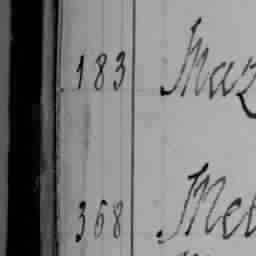 183 Maz
368 Mel